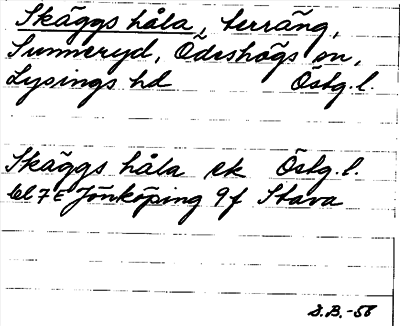 Skäggs håla, terräng,
Sunneryd, Ödeshögs sn,
Lysings hd Östg. l.
Skäggs håla ek Östg. l.
bl 7 E Jönköping 9f Stava
D.B.-56